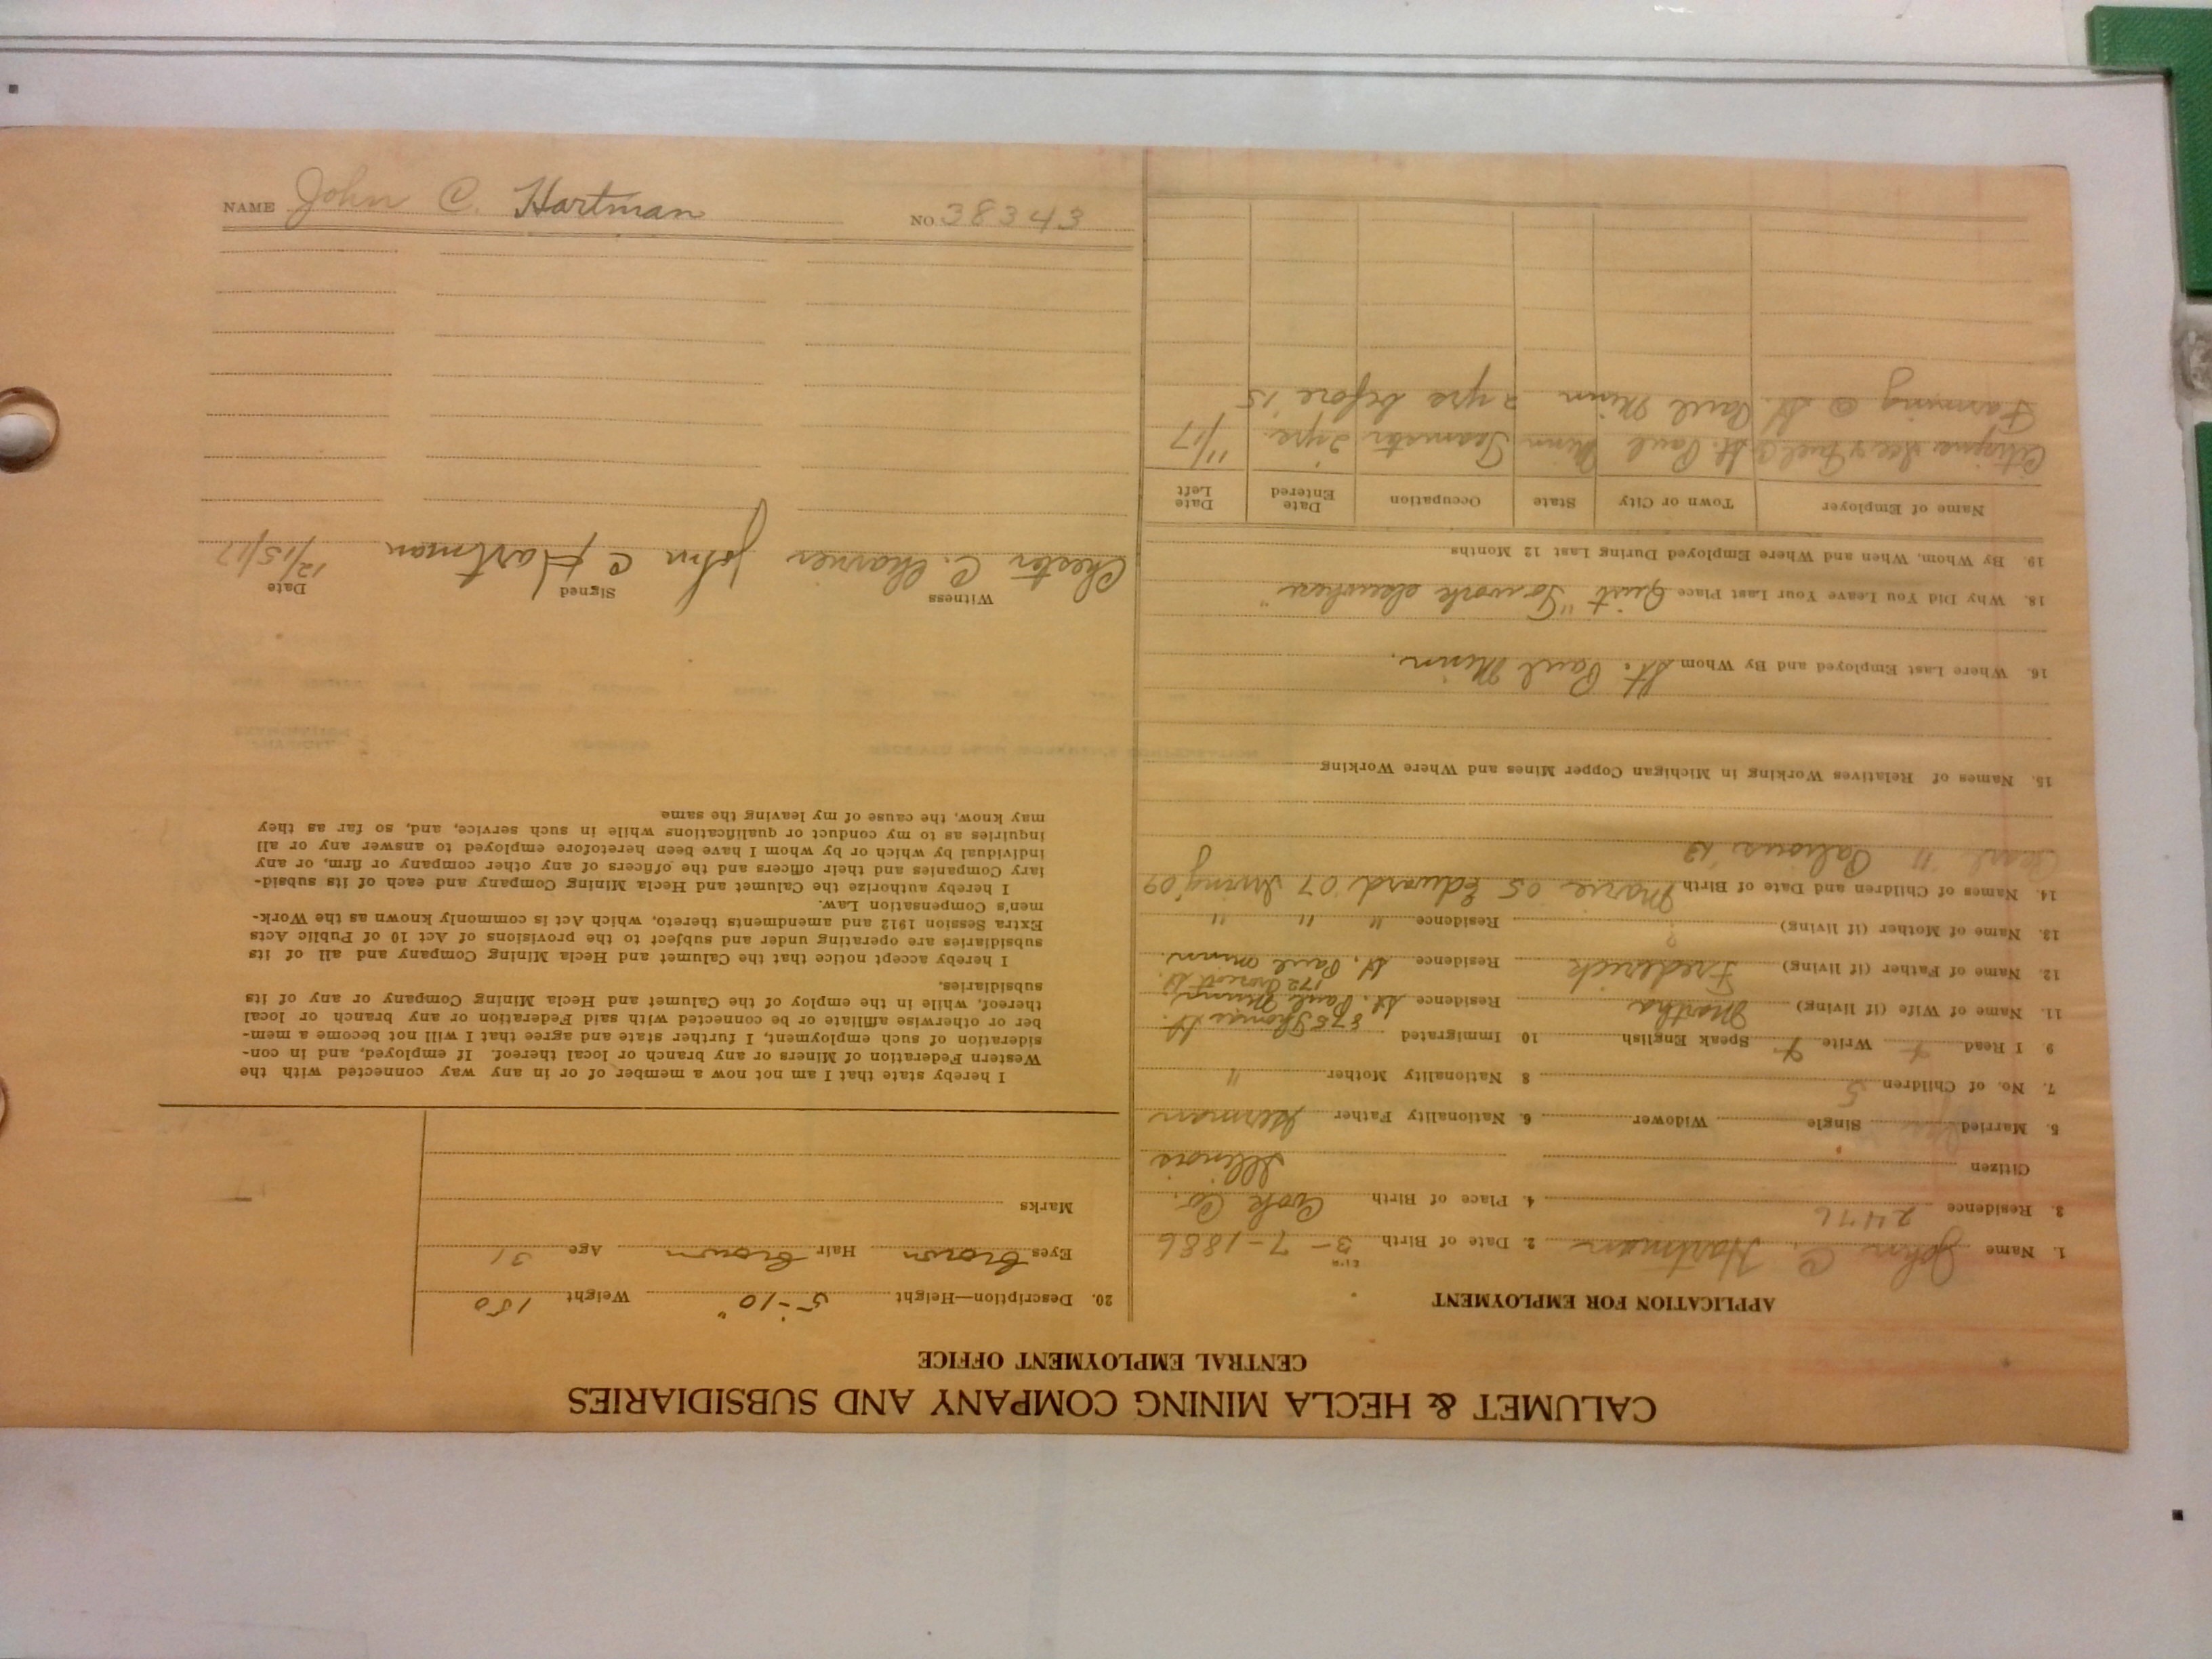 NAME John C. Hartman NO 38343
CALUMET & HECLA MINING COMPANY AND SUBSIDIARIES
CENTRAL EMPLOYMENT OFFICE
APPLICATION FOR EMPLOYMENT
1. Name John C. Hartman 2. Date of Birth 3-7-1886
3. Residence 2476 4. Place of Birth Cook Co.
Citizen Illinois
5. Married Single Widower 6. Nationality Father German
7. No. of Children 5 8 Nationality Mother "
9 I Read Write Speak English 10 Immigrated
875 Thomas St.
11. Name of Wife (if living) Martha Residence St. Paul Minn
12. Name of Father (if living) Frederick Residence St. Paul Minn.
13. Name of Mother (if living) ? Residence " " "
14. Names of Children and Date of Birth Marie 05 Edward '07 Irving '09
Pearl '11 '13
15. Names of Relatives Working in Michigan Copper Mines and Where Working
16. Where Last Employed and By Whom St. Paul Minn.
18. Why Did You Leave Your Last Place Quit "To work elsewhere"
19. By Whom, When and Where Employed During Last 12 Months
Name of Employer Town or City State Occupation Date Entered Date Left
Citizens Ice & Fuel Co St. Paul Minn Teamster 2 yrs. 11/17
Farming @ St. Paul Minn 2 yrs before '15
20. Description—Height 5-10" Weight 150
Eyes brown Hair brown Age 31
Marks
I hereby state that I am not now a member of or in any way connected with the
Western Federation of Miners or any branch or local thereof. If employed, and in con-
sideration of such employment, I further state and agree that I will not become a mem-
ber or otherwise affiliate or be connected with said Federation or any branch or local
thereof, while in the employ of the Calumet and Hecla Mining Company or any of its
subsidiaries.
I hereby accept notice that the Calumet and Hecla Mining Company and all of its
subsidiaries are operating under and subject to the provisions of Act 10 of Public Acts
Extra Session 1912 and amendments thereto, which Act is commonly known as the Work-
men's Compensation Law.
I hereby authorize the Calumet and Hecla Mining Company and each of its subsid-
iary Companies and their officers and the officers of any other company or firm, or any
individual by which or by whom I have been heretofore employed to answer any or all
inquiries as to my conduct or qualifications while in such service, and, so far as they
may know, the cause of my leaving the same
Witness Signed Date
Chester C. John C Hartman 12/15/17